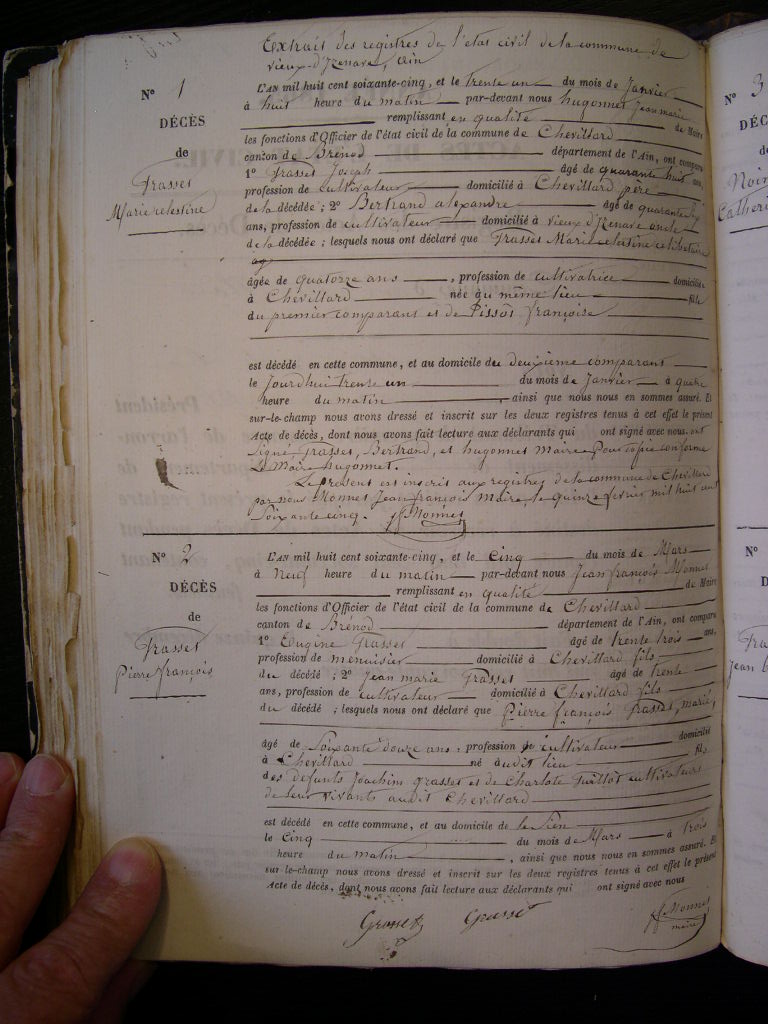 Extrait des registres de l'etat civil de la commune de
vieux-d'Izenave, ain
N° 1
DÉCÈS
de
Grasset
Marie celestine
L'AN mil huit cent soixante-cinq, et le trente un du mois de Janvier
à huit heure du matin par-devant nous hugonnet Jean marie
remplissant en qualité de Maire
les fonctions d'Officier de l'état civil de la commune de Chevillard
canton de Brénod département de l'Ain, ont comparu
1° Grasset Joseph âgé de quarante huit ans,
profession de cultivateur domicilié à Chevillard père
de la décédée ; 2° Bertrand alexandre âgé de quarante
ans, profession de cultivateur domicilié à vieux d'Izenave oncle
de la décédée ; lesquels nous ont déclaré que Grasset Marie celestine celibataire
âgée de quatorze ans, profession de cultivatrice domiciliée
à Chevillard née au même lieu fille
du premier comparant et de Pissot françoise
est décédé en cette commune, et au domicile du deuxieme comparant
le Jourdhui trente un du mois de Janvier à quatre
heure du matin, ainsi que nous nous en sommes assuré. Et
sur-le-champ nous avons dressé et inscrit sur les deux registres tenus à cet effet le présent
acte de décès, dont nous avons fait lecture aux déclarants qui ont signé avec nous. ont
signé Grasset, Bertrand, et hugonnet maire. Pour copie conforme
Le Maire hugonnet.
Le present est inscrit aux registres de la commune de Chevillard
par nous Monnet Jean françois Maire, le quinze fevrier mil huit cent
Soixante cinq. Jf Monnet
N° 2
DÉCÈS
de
Grasset
Pierre françois
L'AN mil huit cent soixante-cinq, et le cinq du mois de Mars
à Neuf heure du matin par-devant nous Jean françois Monnet
remplissant en qualité de Maire
les fonctions d'Officier de l'état civil de la commune de Chevillard
canton de Brénod département de l'Ain, ont comparu
1° Eugène Grasset âgé de trente trois ans,
profession de menuisier domicilié à Chevillard fils
du décédé ; 2° Jean marie Grasset âgé de trente
ans, profession de cultivateur domicilié à Chevillard fils
du décédé ; lesquels nous ont déclaré que Pierre françois Grasset, marié,
âgé de Soixante douze ans, profession de cultivateur domicilié
à Chevillard né audit lieu fils
des defunts Joachim grasset et de Charlote Guillot cultivateurs
de leur vivants audit Chevillard
est décédé en cette commune, et au domicile de le sien
le Cinq du mois de Mars à trois
heure du matin, ainsi que nous nous en sommes assuré. Et
sur-le-champ nous avons dressé et inscrit sur les deux registres tenus à cet effet le présent
acte de décès, dont nous avons fait lecture aux déclarants qui ont signé avec nous
Grasset Grasset Jf Monnet
maire
N° 3
Noir
Catheri
N°
Gra
Jean